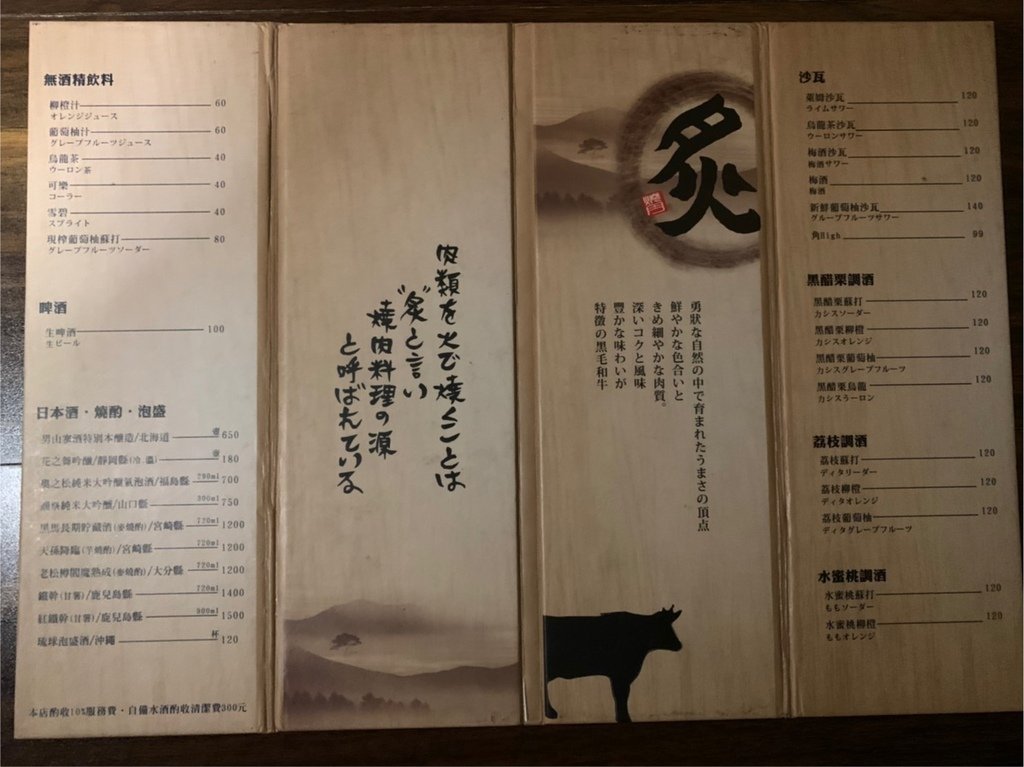 無酒精飲料
柳橙汁 60
オレンジジュース
葡萄柚汁 60
グレープフルーツジュース
烏龍茶 40
ウーロン茶
可樂 40
コーラー
雪碧 40
スプライト
現榨葡萄柚蘇打 80
グレープフルーツソーダー
啤酒
生啤酒 100
生ビール
日本酒・燒酌・泡盛
男山寒酒特別本釀造/北海道 壺650
花之舞吟釀/靜岡縣(冷.溫) 壺180
奧之松純米大吟釀氣泡酒/福島縣 290ml 700
純米大吟釀/山口縣 300ml 750
黑馬長期貯藏酒(麥燒酌)/宮崎縣 720ml 1200
天孫降臨(芋燒酌)/宮崎縣 720ml 1200
老松樽閻魔熟成(麥燒酌)/大分縣 720ml 1200
鐵幹(甘薯)/鹿兒島縣 720ml 1400
紅鐵幹(甘薯)/鹿兒島縣 900ml 1500
琉球泡盛酒/沖繩 杯120
本店酌收10%服務費・自備水酒酌收清潔費300元
肉類を火で焼くことは
“炙”と言い
焼肉料理の源
と呼ばれている
炙
燒肉
勇狀な自然の中で育まれたうまさの頂点
鮮やかな色合いと
きめ細やかな肉質。
深いコクと風味
豐かな味わいが
特徴の黒毛和牛
沙瓦
萊姆沙瓦 120
ライムサワー
烏龍茶沙瓦 120
ウーロンサワー
梅酒沙瓦 120
梅酒サワー
梅酒 120
梅酒
新鮮葡萄柚沙瓦 140
グループフルーツサワー
角High 99
黑醋栗調酒
黑醋栗蘇打 120
カシスソーダー
黑醋栗柳橙 120
カシスオレンジ
黑醋栗葡萄柚 120
カシスグレープフルーツ
黑醋栗烏龍 120
カシスラーロン
荔枝調酒
荔枝蘇打 120
ディタリーダー
荔枝柳橙 120
ディタオレンジ
荔枝葡萄柚 120
ディタグレープフルーツ
水蜜桃調酒
水蜜桃蘇打 120
ももソーダー
水蜜桃柳橙 120
ももオレンジ